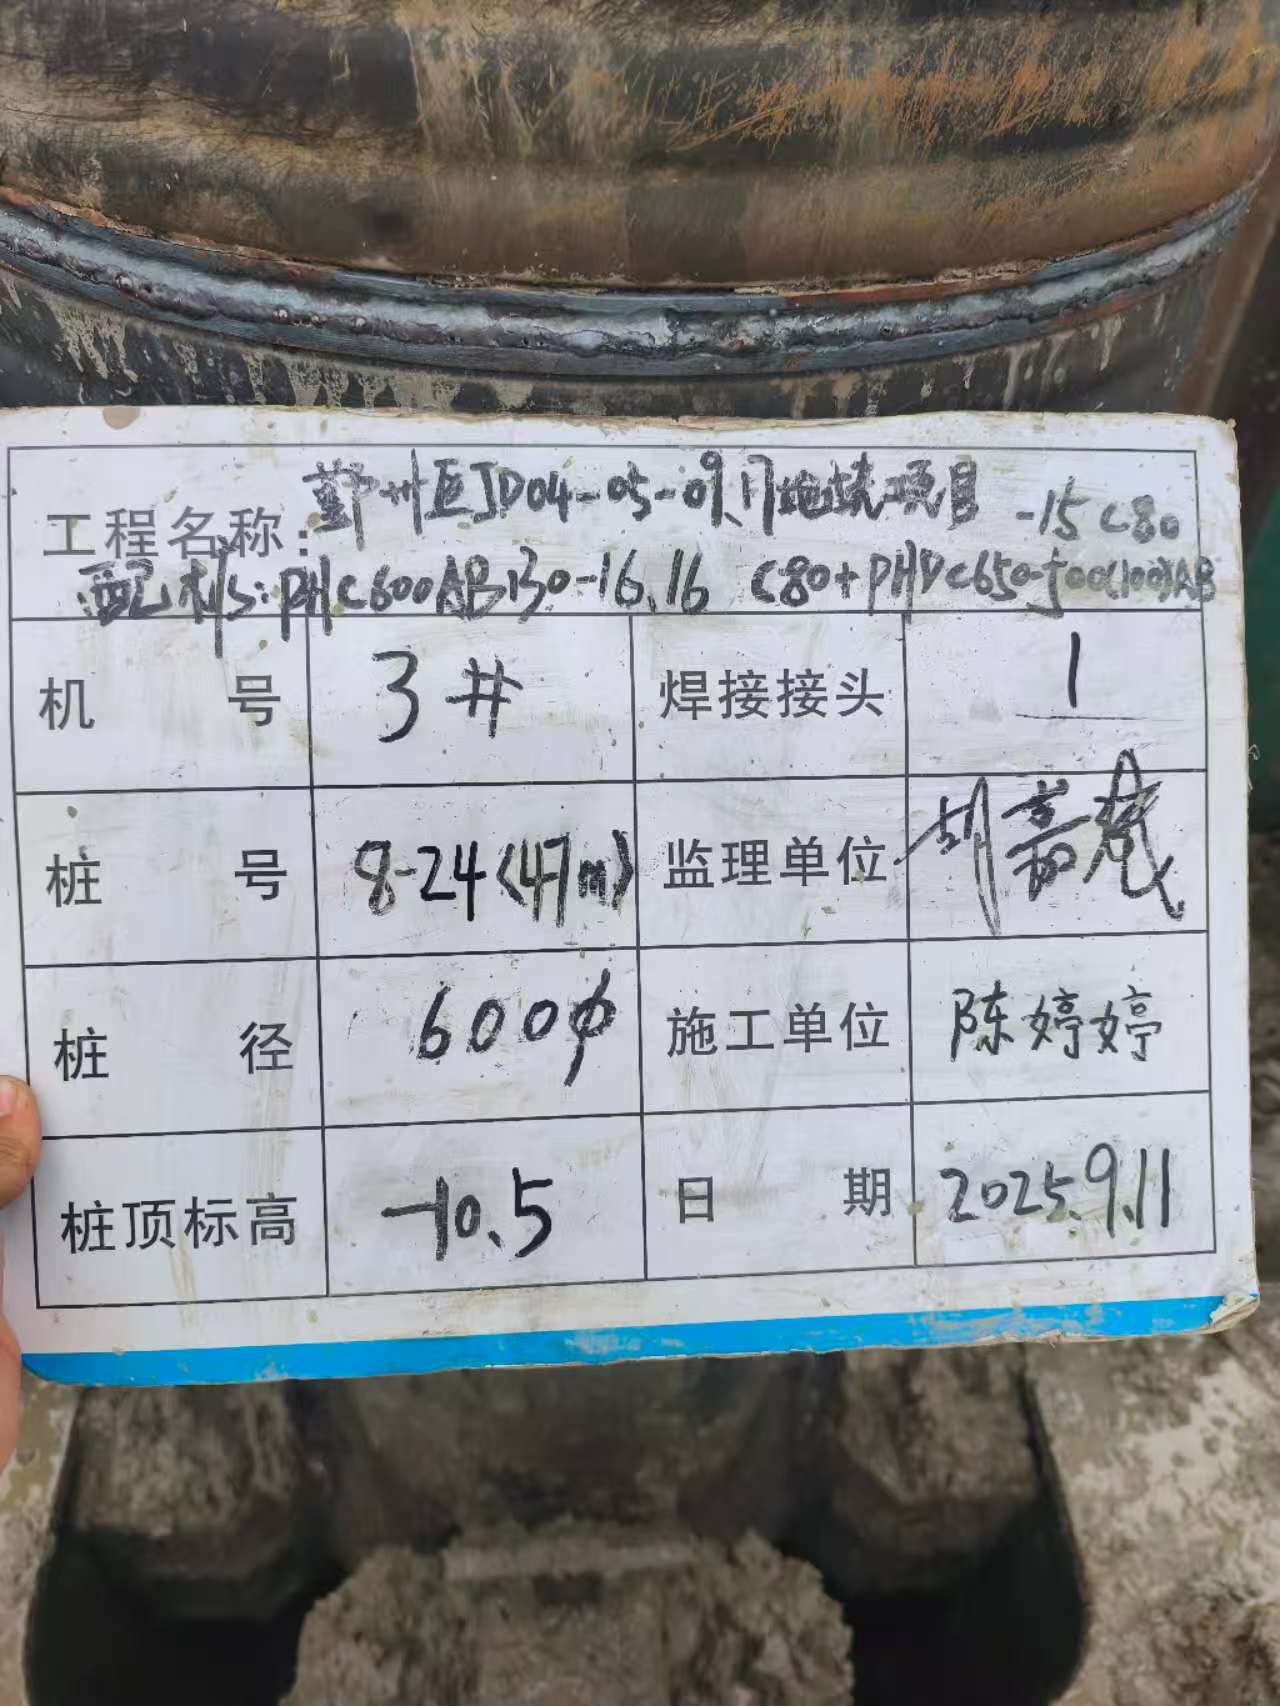 工程名称:鄞州区JD04-05-09、17地块项目
-15 C80
配桩:PHC600AB130-16.16 C80+PHDC650-500(100)AB
机号 3# 焊接接头 1
桩号 8-24(47m) 监理单位 胡嘉
桩径 600φ 施工单位 陈婷婷
桩顶标高 -10.5 日期 2025.9.11